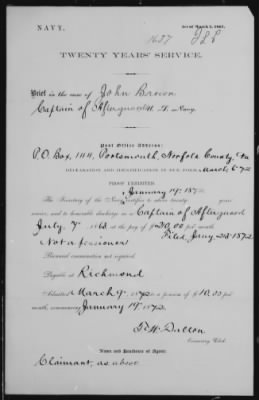 NAVY.
Act of March 2, 1867.
1637
TWENTY YEARS' SERVICE.
Brief in the case of John Brown
Captain of Afterguard U. S. Navy.
Post Office Address:
P.O. Box, 1111, Portsmouth, Norfolk County, Va
DECLARATION AND IDENTIFICATION IN DUE FORM March 6" 1872
PROOF EXHIBITED.
January 19" 1872
The Secretary of the Navy certifies to above twenty years'
service, and to honorable discharge as a Captain of Afterguard
July 7" 1863 at the pay of $30.00 per month.
Filed Jany. 23" 1872.
Not a pensioner
Biennial examination not required.
Payable at Richmond
Admitted March 9" 1872 to a pension of $ per
month, commencing January 19" 1872.
Examining Clerk.
Name and Residence of Agent:
Claimant, as above